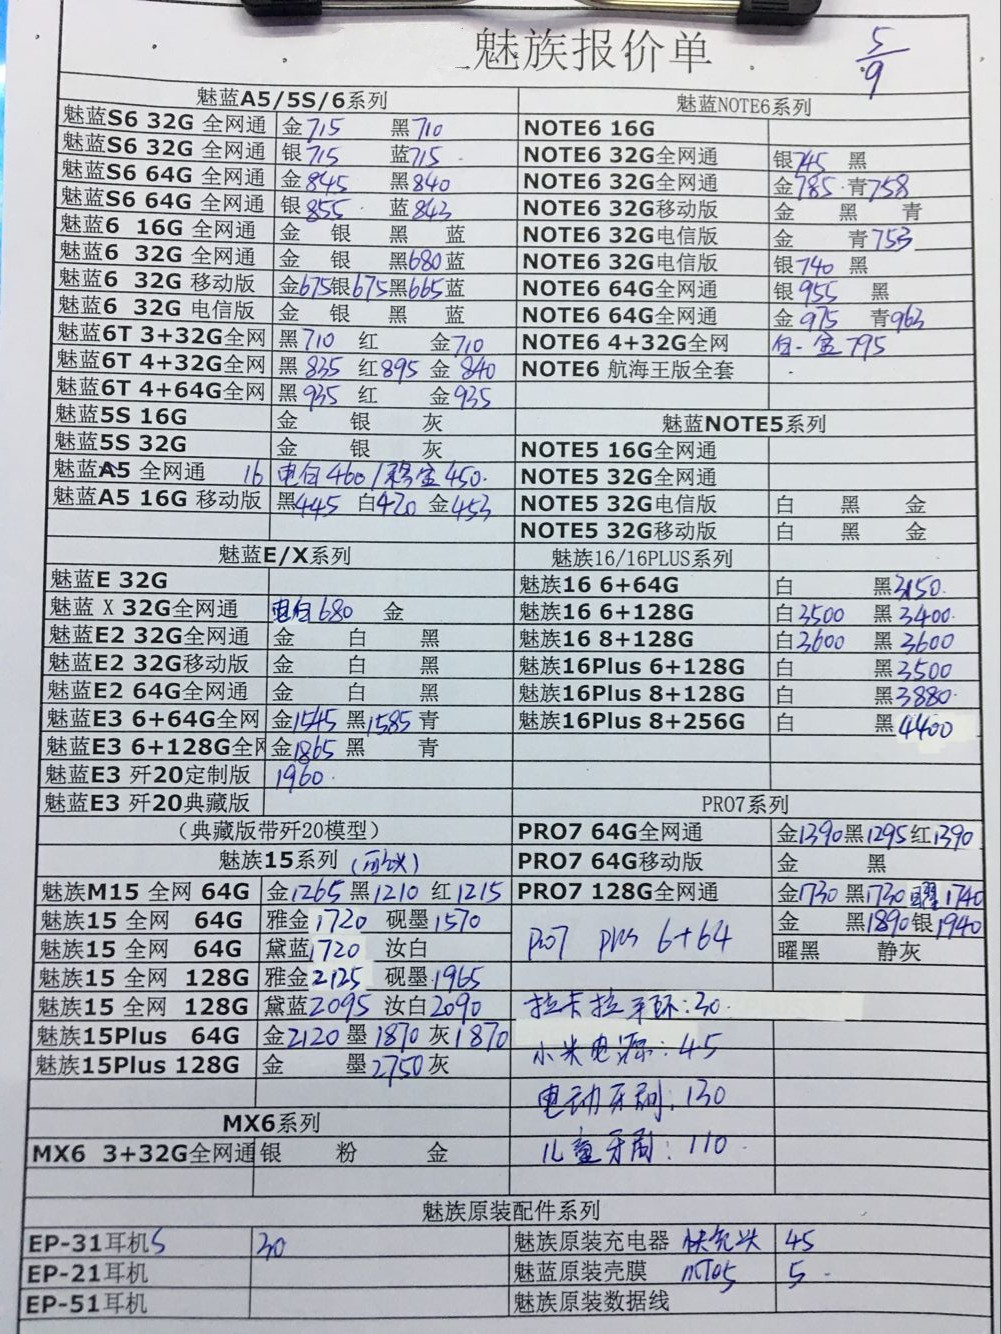 魅族报价单
5/9
魅蓝A5/5S/6系列
魅蓝S6 32G 全网通 金715 黑710
魅蓝S6 32G 全网通 银715 蓝715
魅蓝S6 64G 全网通 金845 黑840
魅蓝S6 64G 全网通 银855 蓝843
魅蓝6 16G 全网通 金 银 黑 蓝
魅蓝6 32G 全网通 金 银 黑680 蓝
魅蓝6 32G 移动版 金675 银675 黑665 蓝
魅蓝6 32G 电信版 金 银 黑 蓝
魅蓝6T 3+32G全网 黑710 红 金710
魅蓝6T 4+32G全网 黑835 红895 金840
魅蓝6T 4+64G全网 黑935 红 金935
魅蓝5S 16G 金 银 灰
魅蓝5S 32G 金 银 灰
魅蓝A5 全网通 16 电白460/移金450.
魅蓝A5 16G 移动版 黑445 白420 金453
魅蓝E/X系列
魅蓝E 32G
魅蓝 X 32G全网通 电白680 金
魅蓝E2 32G全网通 金 白 黑
魅蓝E2 32G移动版 金 白 黑
魅蓝E2 64G全网通 金 白 黑
魅蓝E3 6+64G全网 金1545 黑1585 青
魅蓝E3 6+128G全网 金1865 黑 青
魅蓝E3 歼20定制版 1960.
魅蓝E3 歼20典藏版
（典藏版带歼20模型）
魅族15系列 (可议)
魅族M15 全网 64G 金1265 黑1210 红1215
魅族15 全网 64G 雅金1720 砚墨1570
魅族15 全网 64G 黛蓝1720 汝白
魅族15 全网 128G 雅金2125 砚墨1965
魅族15 全网 128G 黛蓝2095 汝白2090
魅族15Plus 64G 金2120 墨1870 灰1870
魅族15Plus 128G 金 墨2750 灰
MX6系列
MX6 3+32G全网通 银 粉 金
魅蓝NOTE6系列
NOTE6 16G
NOTE6 32G全网通 银745 黑
NOTE6 32G全网通 金785 青758
NOTE6 32G移动版 金 黑 青
NOTE6 32G电信版 金 青753
NOTE6 32G电信版 银740 黑
NOTE6 64G全网通 银955 黑
NOTE6 64G全网通 金975 青963
NOTE6 4+32G全网 白.金795
NOTE6 航海王版全套
魅蓝NOTE5系列
NOTE5 16G全网通
NOTE5 32G全网通
NOTE5 32G电信版 白 黑 金
NOTE5 32G移动版 白 黑 金
魅族16/16PLUS系列
魅族16 6+64G 白 黑3150.
魅族16 6+128G 白3500 黑3400.
魅族16 8+128G 白3600 黑3600
魅族16Plus 6+128G 白 黑3500
魅族16Plus 8+128G 白 黑3880.
魅族16Plus 8+256G 白 黑4400
PRO7系列
PRO7 64G全网通 金1390 黑1295 红1390
PRO7 64G移动版 金 黑
PRO7 128G全网通 金1730 黑1730 曜1740
Pro7 plus 6+64 金 黑1890 银1940
曜黑 静灰
拉卡拉手环:30.
小米电源:45
电动牙刷:130
儿童牙刷:110
魅族原装配件系列
EP-31耳机S 30 魅族原装充电器 快充头 45
EP-21耳机 魅蓝原装壳膜 5.
EP-51耳机 魅族原装数据线